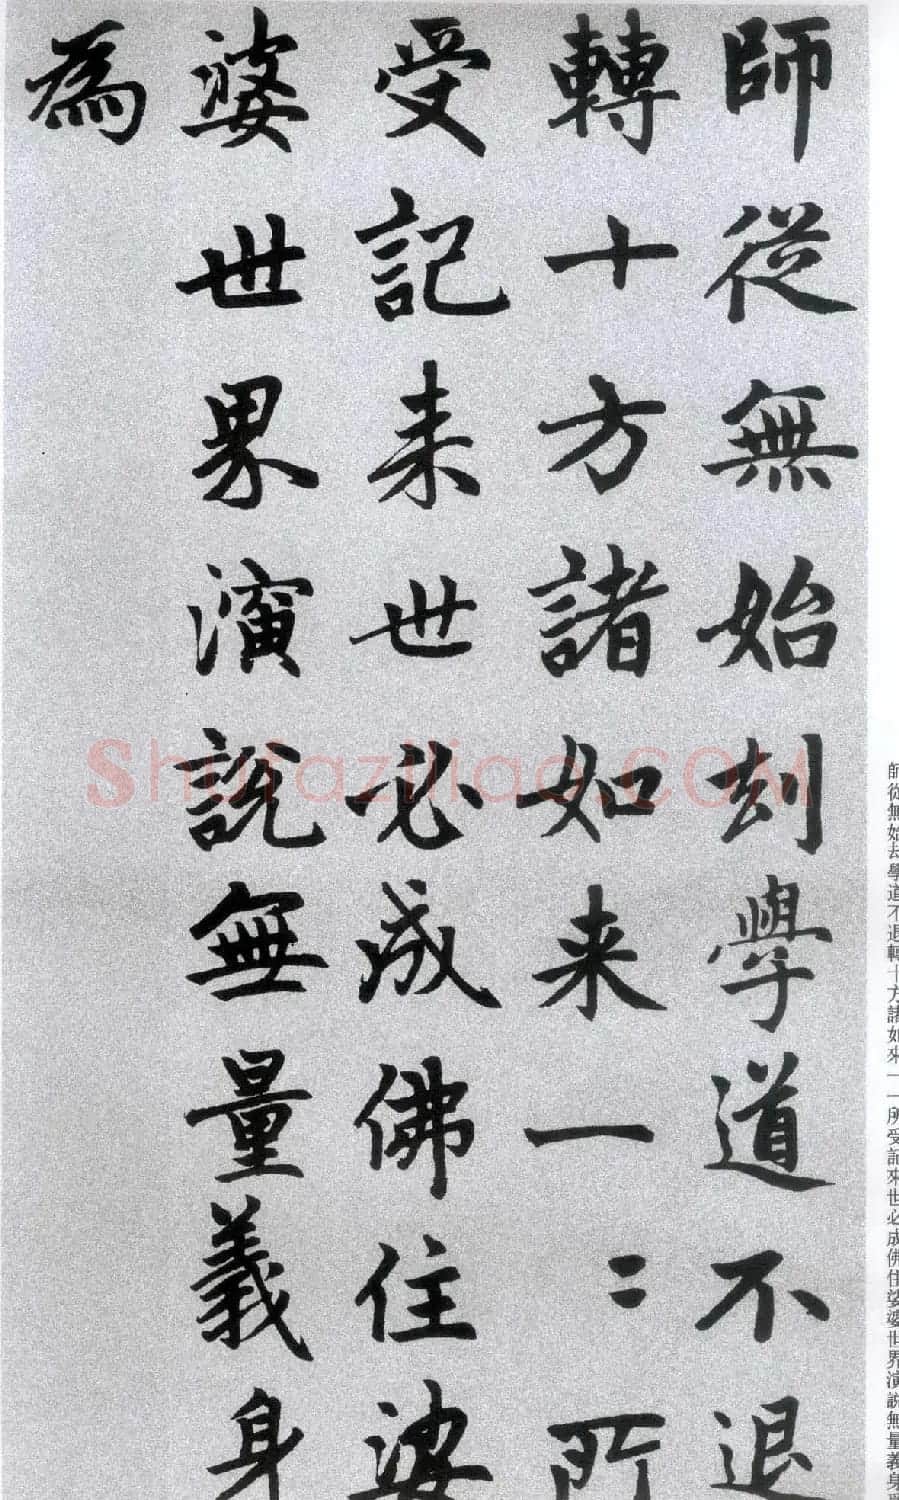 師從無始刦學道不退
轉十方諸如来一〻所
受記来世必成佛住娑
婆世界演說無量義身
為
師從無始去學道不退轉十方諸如來一一所受記來世必成佛住娑婆世界演說無量義身
Shufaziliao.COM